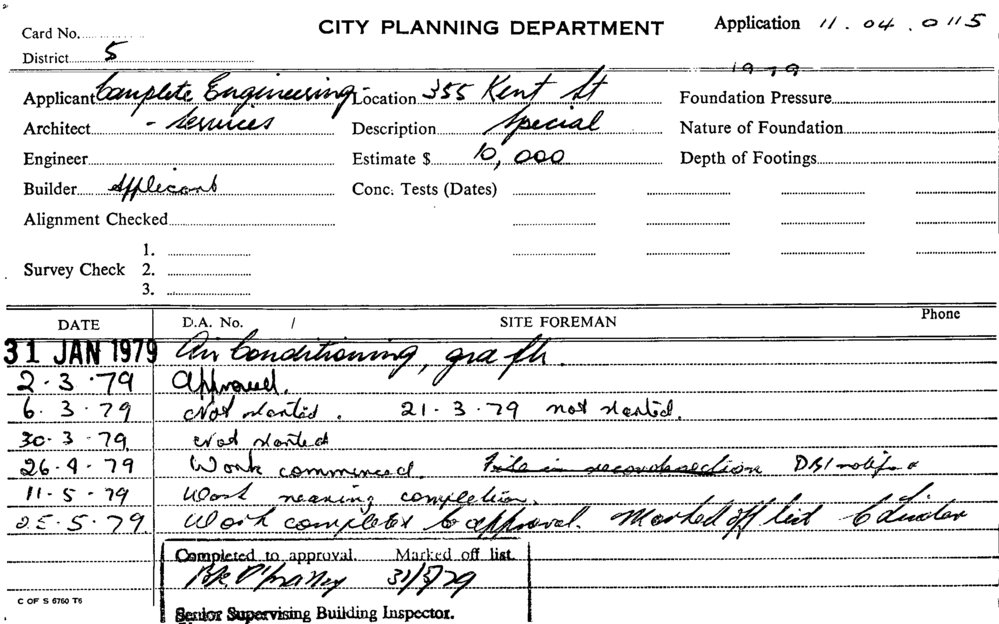 CITY PLANNING DEPARTMENT
Application 11.04.0115
1979
Card No.
District 5
Applicant Complete Engineering Location 355 Kent St Foundation Pressure
Architect - Services Description Special Nature of Foundation
Engineer Estimate $ 10,000 Depth of Footings
Builder Applicant Conc. Tests (Dates)
Alignment Checked
1.
Survey Check 2.
3.
DATE D.A. No. / SITE FOREMAN Phone
31 JAN 1979 Air Conditioning, gra flr.
2.3.79 Approved.
6.3.79 Not started. 21.3.79 not started.
30.3.79 Not started
26.4.79 Work commenced. File in record section DBI
11-5-79 Work nearing completion.
25.5.79 Work completed to approval. Marked off list
Completed to approval. Marked off list.
31/5/79
Senior Supervising Building Inspector.
C OF S 6760 T6